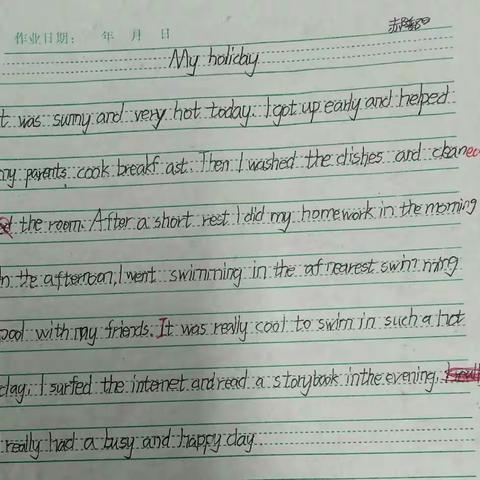 作业日期: 年 月 日
My holiday
t was sunny and very hot today. I got up early and helped
my parents cook breakf ast. Then I washed the dishes and cleaned
the room. After a short rest I did my homework in the morning
n the afternoon, I went swimming in the af nearest swimming
pool with my friends. It was really cool to swim in such a hot
day. I surfed the internet and read a storybook in the evening.
really had a busy and happy day.